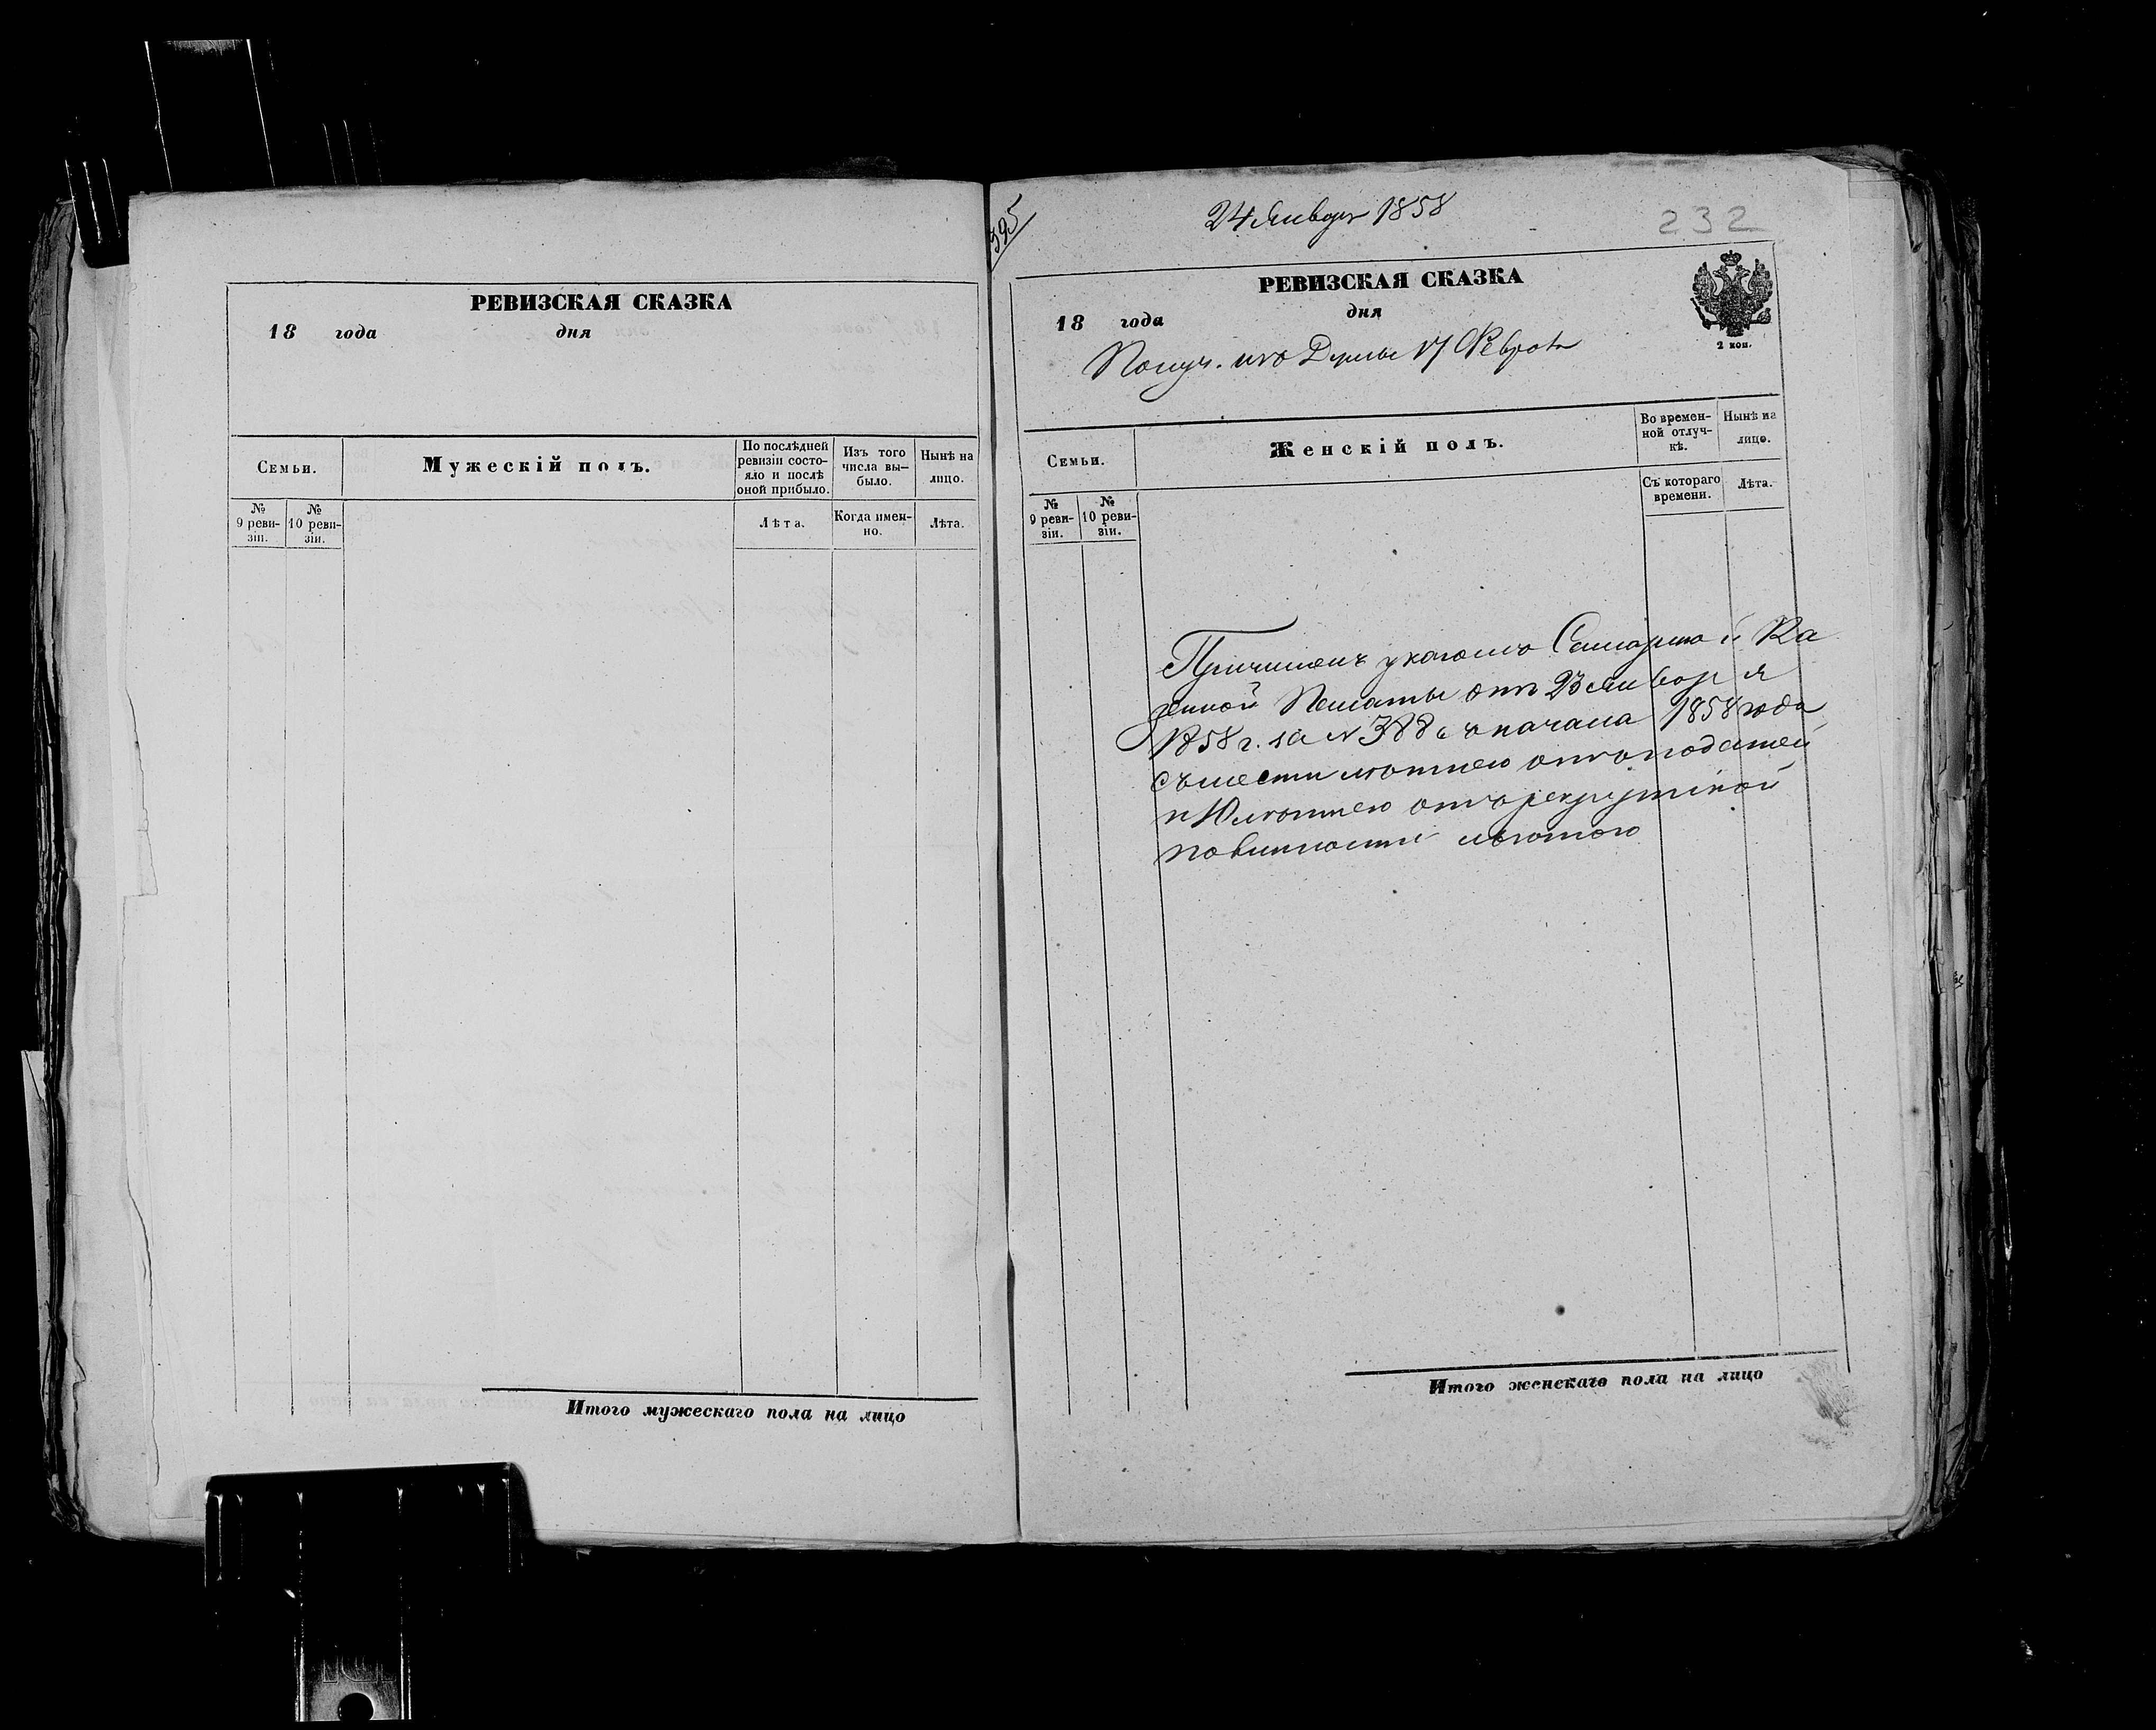 РЕВИЗСКАЯ СКАЗКА
18 года дня
Семьи.
Мужескій полъ.
По послѣдней ревизіи состо-
яло и послѣ
оной прибыло.
Изъ того
числа вы-
было.
Нынѣ на
лицо.
№
9 реви-
зіи.
№
10 реви-
зіи.
Лѣта.
Когда имен-
но.
Лѣта.
Итого мужескаго пола на лицо
395
24 Января 1858
232
РЕВИЗСКАЯ СКАЗКА
18 года дня
2 коп.
Получ. 17 Февраля
Семьи.
Женскій полъ.
Во времен-
ной отлуч-
кѣ.
Нынѣ на
лицо.
№
9 реви-
зіи.
№
10 реви-
зіи.
Съ котораго
времени.
Лѣта.
Причисленъ указомъ Самарской Ка
зенной Палаты отъ 23 Января
1858 г. за № 388 съ начала 1858 года
съ шести лѣтнею отъ податей
и лѣтнею отъ рекрутской
повинности льготою
Итого женскаго пола на лицо